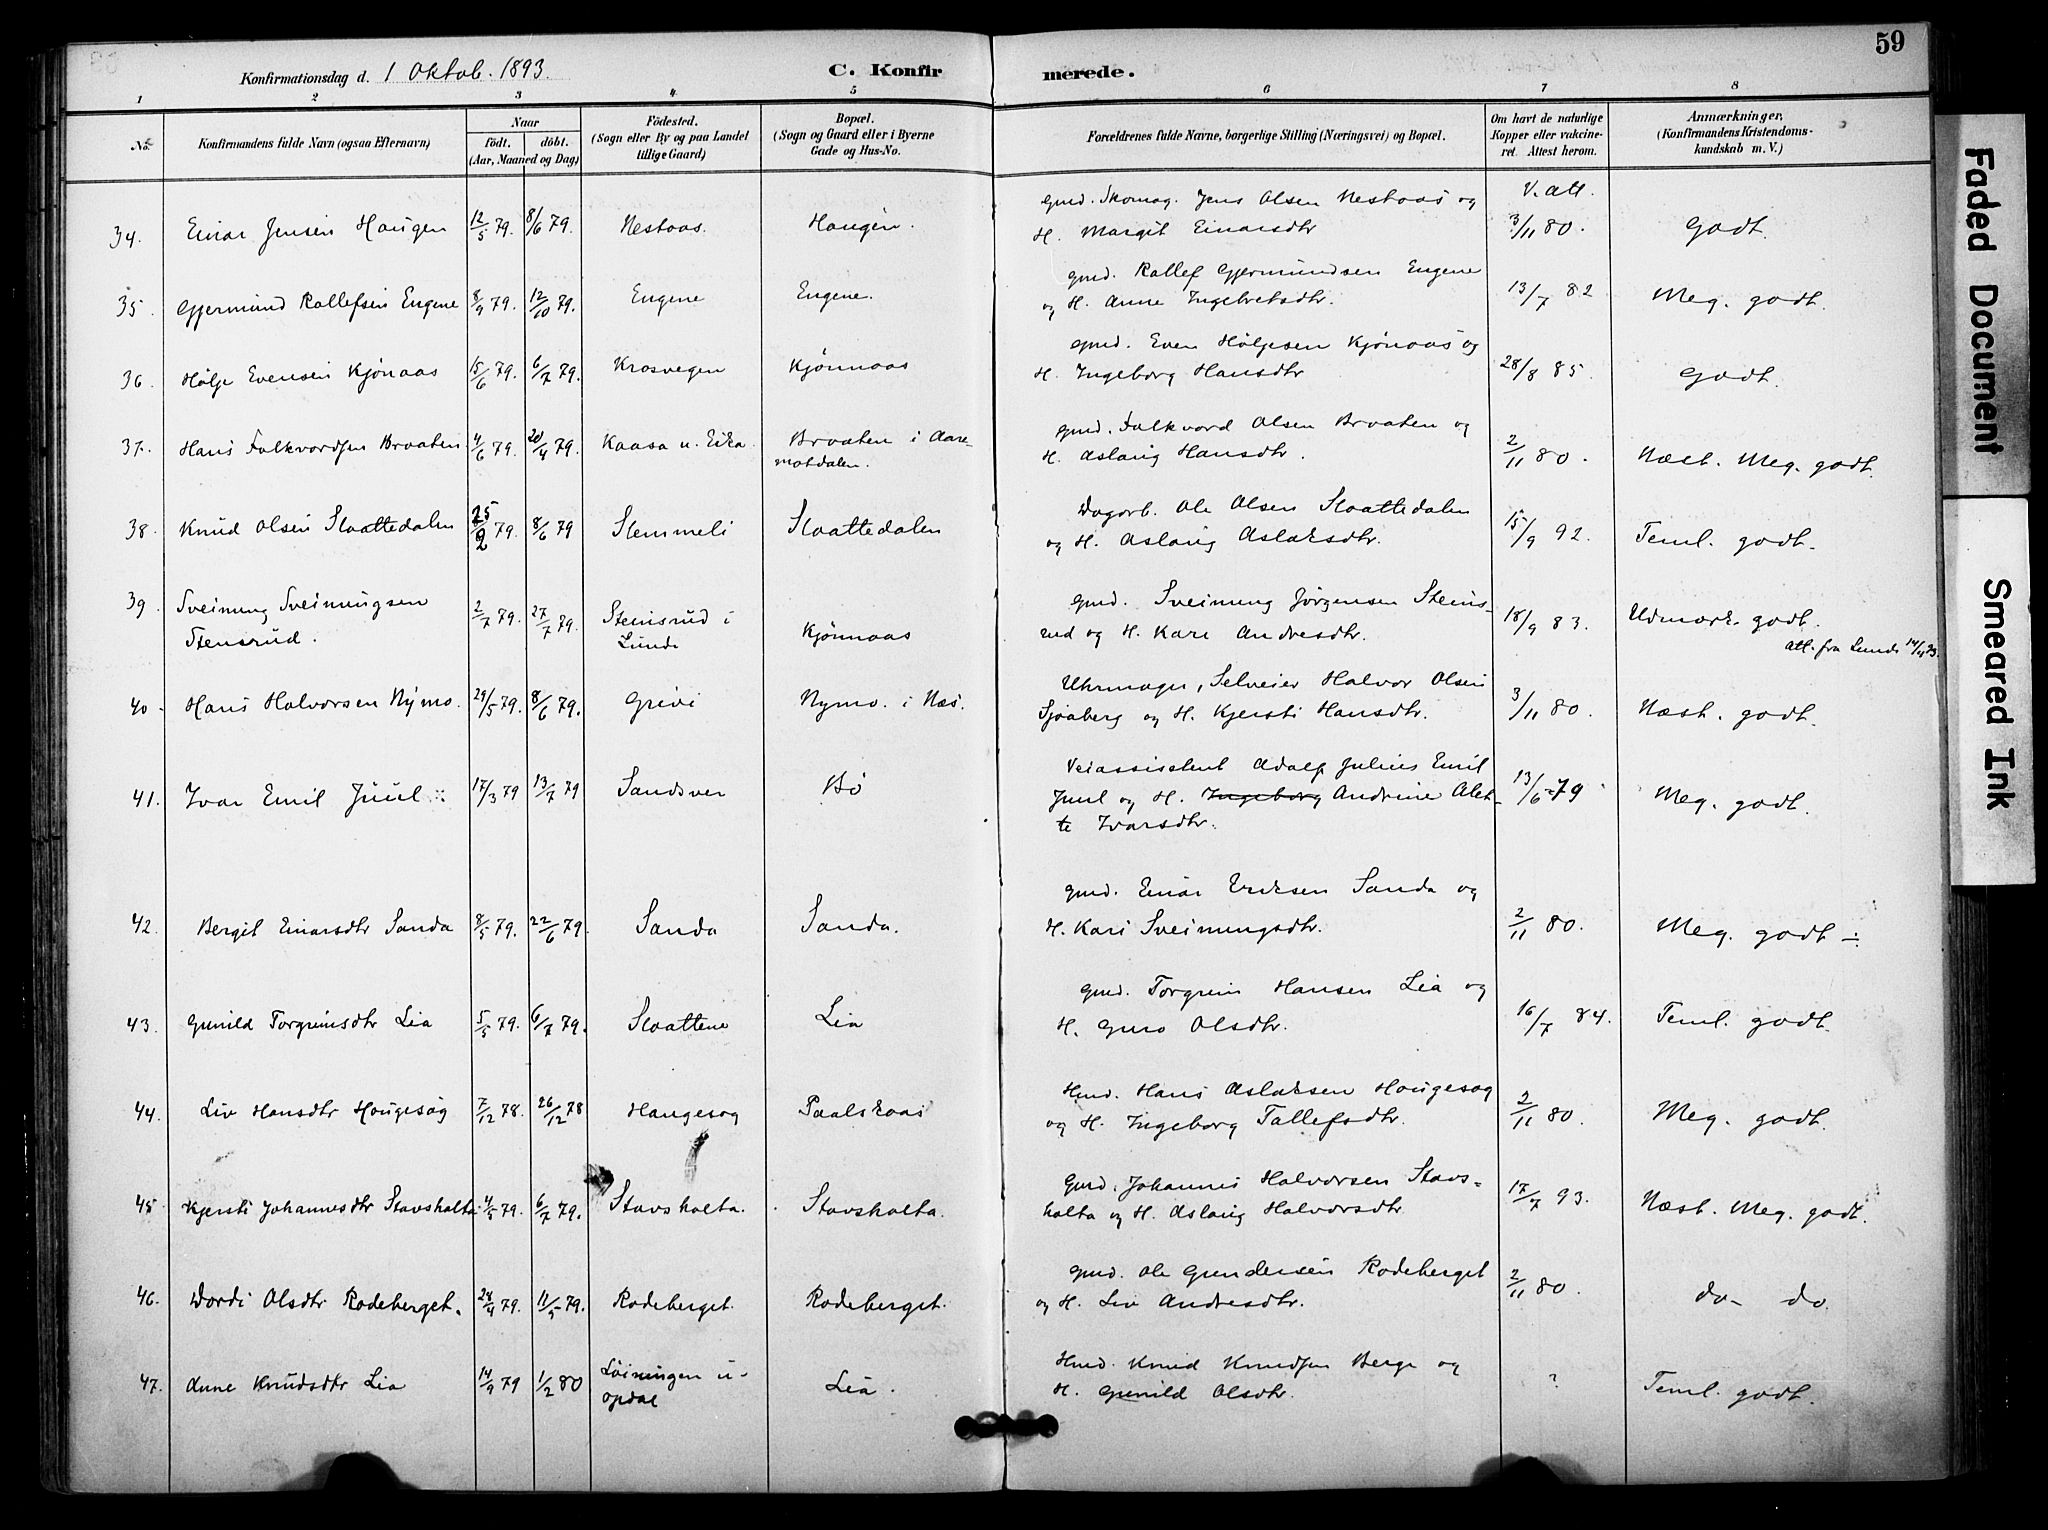 59
Konfirmationsdag d. 1 Oktob. 1893.
C. Konfirmerede.
1 2 3 4 5 6 7 8
No.
Konfirmandens fulde Navn (ogsaa Efternavn)
Naar
födt. döbt.
(Aar, Maaned og Dag)
Födested.
(Sogn eller By og paa Landet
tillige Gaard)
Bopæl.
(Sogn og Gaard eller i Byerne
Gade og Hus-No.
Forældrenes fulde Navne, borgerlige Stilling (Næringsvei) og Bopæl.
Om havt de naturlige
Kopper eller vakcine-
ret. Attest herom.
Anmærkninger,
(Konfirmandens Kristendoms-
kundskab m. V.)
34. Einar Jensen Haugen 12/5 79. 8/6 79. Nestaas. Haugen. Gmd. Skomag. Jens Olsen Nestaas og
H. Margit Einarsdtr V. att. 3/11 80. Godt.
35. Gjermund Rollefsen Eugene 8/9 79. 12/10 79. Eugene Eugene. Gmd. Rollef Gjermundsen Eugene
og H. Anne Ingebretsdtr. 13/7 82 Meg. godt.
36. Hølje Evensen Kjønaas 15/6 79. 6/7 79. Krosvegen Kjønnaas Gmd. Even Høljesen Kjønaas og
H. Ingeborg Hansdtr 28/8 85. Godt.
37. Hans Folkvordsen Braaten 4/6 79. 20/4 79. Kaasa u. Eika. Braaten i Aare-
motdalen. Gmd. Folkvord Olsen Braaten og
H. Aslaug Hansdtr. 2/11 80. Næst. Meg. godt.
38. Knud Olsen Slaattedalen 25/2 79. 8/6 79 Stemmeli Slaattedalen Dagarb. Ole Olsen Slaattedalen
og H. Aslaug Aslaksdtr. 15/9 92. Teml. godt.
39. Sveinung Sveinungsen
Stensrud. 2/7 79. 27/7 79. Steinsrud i
Lunde Kjønnaas Gmd. Sveinung Jørgensen Steins-
rud og H. Kari Andresdtr. 18/9 83. Udmærk. godt.
Att. fra Lunde 14/4 93.
40. Hans Halvorsen Nymo. 29/5 79. 8/6 79. Grivi Nymo. i Næs. Uhrmager, Selveier Halvor Olsen
Sjøaberg og H. Kjersti Hansdtr. 3/11 80. Næst. godt.
41. Ivar Emil Juul 17/3 79 13/7 79 Sandsver Bø Veiassistent Adolf Julius Emil
Juul og H. Ingeborg Andrine Alet-
te Ivarsdtr. 13/6 79 Meg. godt.
42. Bergit Einarsdtr Sanda 8/5 79. 22/6 79. Sanda Sanda. Gmd. Einar Eriksen Sanda og
H. Kari Sveinungsdtr. 2/11 80. Meg. godt ÷
43. Gunild Torgrimsdtr Lia 5/5 79. 6/7 79. Slaattene Lia Gmd. Torgrim Hansen Lia og
H. Guro Olsdtr. 16/7 84. Teml. godt.
44. Liv Hansdtr Haugesag 7/12 78. 26/12 78 Haugesag Paalskaas Hmd. Hans Aslaksen Haugesag
og H. Ingeborg Tallefsdtr. 2/11 80. Meg. godt.
45. Kjersti Johannesdtr Stavsholta 4/5 79. 6/7 79. Stavsholta. Stavsholta. Gmd. Johannes Halvorsen Stavs-
holta og H. Aslaug Halvorsdtr. 17/7 93. Næst. Meg. godt.
46. Dordi Olsdtr Rodeberget. 24/4 79. 11/5 79. Rodeberget. Rodeberget. Gmd. Ole Gundersen Rodeberget
og H. Liv Andresdtr. 2/11 80. do do
47. Anne Knudsdtr Lia 14/9 79 1/2 80 Løiningen u-
opdal Lia. Hmd. Knud Knudsen Berge og
H. Gunild Olsdtr. ? Teml. godt.
Faded Document
Smeared Ink